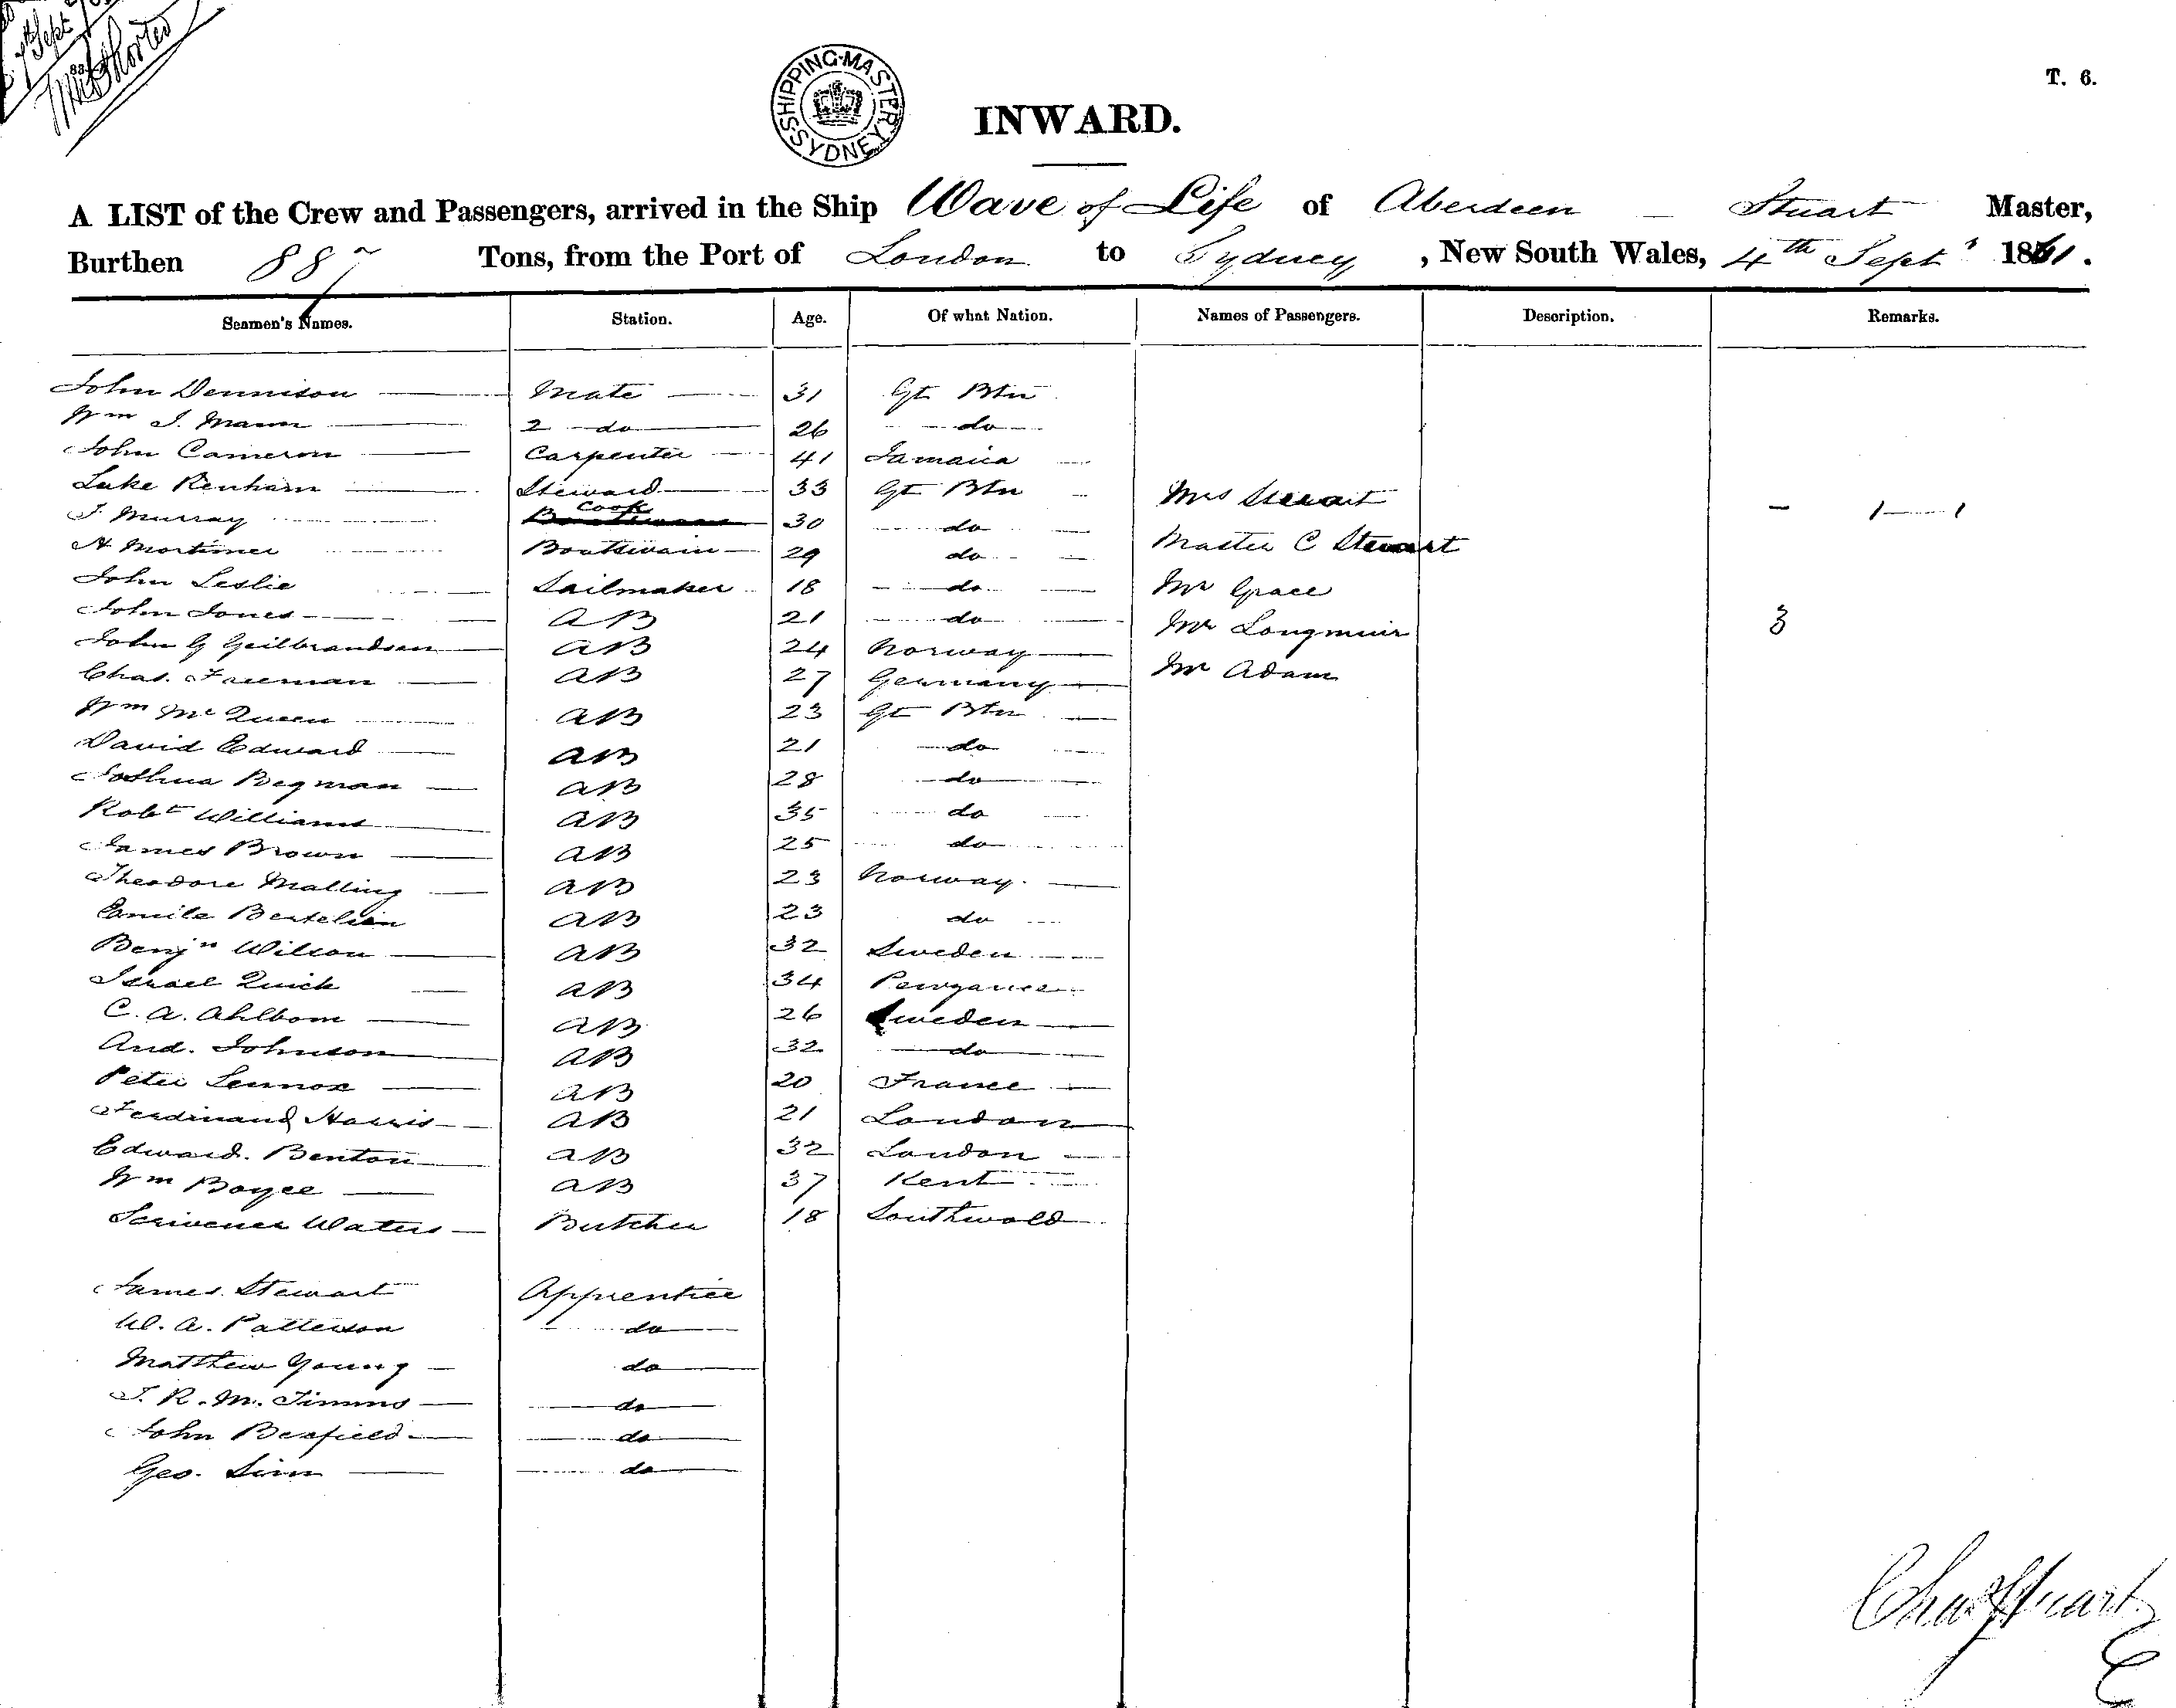 7th Sept
SHIPPING-MASTER
SYDNEY
T. 6.
INWARD.
A LIST of the Crew and Passengers, arrived in the Ship Wave of Life of Aberdeen – Stuart Master,
Burthen 887 Tons, from the Port of London to Sydney, New South Wales, 4th Sept 1861.
Seamen's Names. Station. Age. Of what Nation. Names of Passengers. Description. Remarks.
John Dennison Mate 31 Gt Btn
Wm J. Mann 2 do 26 do
John Cameron Carpenter 41 Jamaica
Luke Renham Steward 33 Gt Btn Mrs Stewart
J. Murray Cook 30 do – 1 — 1
A Mortimer Boatswain 29 do Master C Stewart
John Leslie Sailmaker 18 do Mr Grace
John Jones AB 21 do Mr Longmuir 3
John G Geilbrandsen AB 24 Norway
Chas. Freeman AB 27 Germany Mr Adam
Wm McQueen AB 23 Gt Btn
David Edward AB 21 do
Joshua Begman AB 28 do
Robt Williams AB 35 do
James Brown AB 25 do
Theodore Malling AB 23 Norway
Emile Bertelsen AB 23 do
Benjn Wilson AB 32 Sweden
Israel Quick AB 34
C. A. Ahlbom AB 26 Sweden
And. Johnson AB 32 do
Peter Lennox AB 20 France
Ferdinand Harris AB 21 London
Edward Benton AB 32 London
Wm Boyce AB 37 Kent
Scrivener Waters Butcher 18 Southwold
James Stewart Apprentice
W. A. Patterson do
Matthew Young do
J. R. M. Timms do
John Bexfield do
Geo. Sim do
Chas Stuart